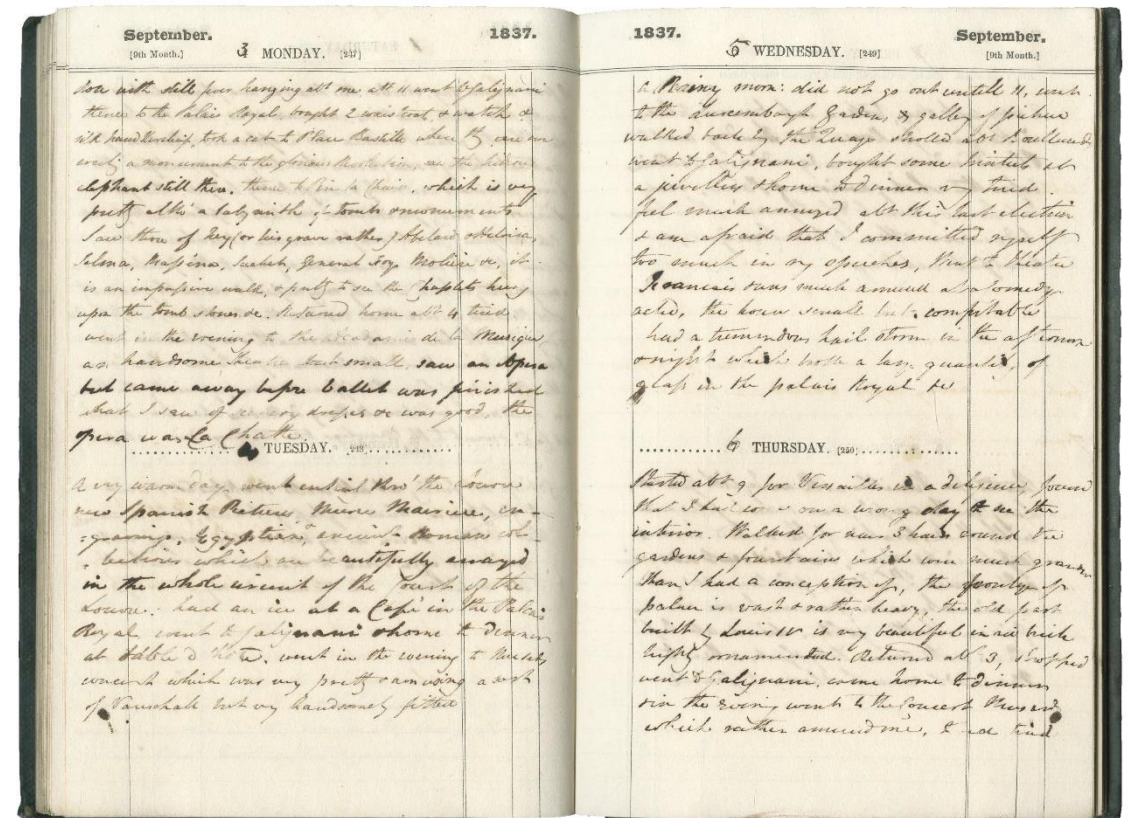 September. 1837.
[9th Month.] 3 MONDAY. [247]
with still fever hanging abt me, at 11 went to Galignani
thence to the Palais Royal, bought 2 a watch &
silk handkerchief, took a cab to Place Bastille where they are
a monument to the glorious
elephant still there, thence to la Chaise, which is very
pretty altho' a labyrinth of tombs & monuments
I saw those of Ney (or his grave rather) Abelard & Heloisa,
Talma, Massena, Suchet, General Foy, Moliere &c, it
is an impressive walk, & pretty to see the Chaplets hung
upon the tomb stones &c. Returned home abt 4 tired
went in the evening to the Academie de la Musique
an handsome Theatre but small, saw an Opera
but came away before ballet was finished
what I saw of scenery dresses &c was good, the
opera was La
TUESDAY.
A very warm day, went entirely thro' the Louvre
new Spanish Pictures, Musee Marine, en-
=gravings, Egyptian, ancient Roman col-
lections which are beautifully arranged
in the whole circuit of the Court of the
Louvre. had an ice at a Cafe in the Palais
Royal, went to Galignani & home to dinner
at table d'hote. went in the evening to Musard
concert which was very pretty & amusing a sort
of Vauxhall but very handsomely fitted
1837. September.
5 WEDNESDAY. [249] [9th Month.]
A Rainy morn: did not go out untill 11, went
to the Luxembourgh Gardens & gallery of pictures
walked back by the Quays strolled abt Boulevards
went to Galignani, bought some at
a jewellers & home to dinner very tired.
feel much annoyed abt this last election
& am afraid that I committed myself
too much in my speeches, Went to Theatre
Francais & was much amused at a Comedy
acted, the house small but comfortable
had a tremendous hail storm in the afternoon
& night which broke a large quantity of
glass in the palais Royal &c
6 THURSDAY. [250]
Started abt 9 for Versailles in a diligence, found
that I had come on a wrong day to see the
interior. Walked for near 3 hours round the
gardens & fountains which were much grander
than I had a conception of, the frontage of
palace is vast & rather heavy, the old part
built by Louis is very beautiful in red brick
highly ornamented. Returned abt 3, shopped
went to Galignani. came home to dinner
& in the Evening went to the Concert Musard
which rather amused me, tired